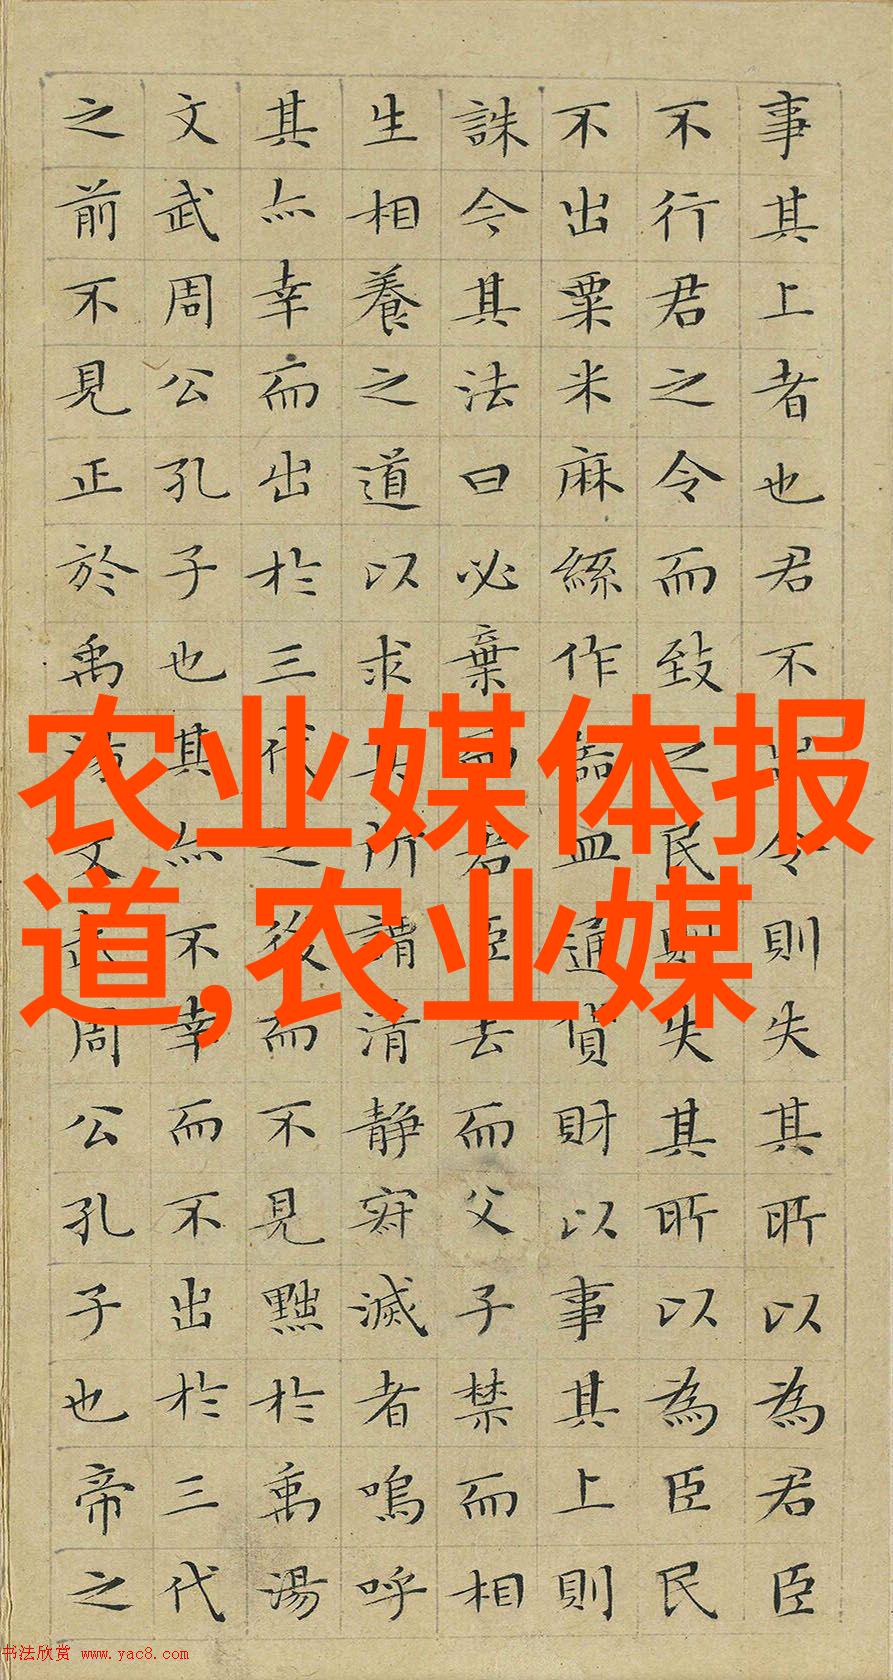 事其上者也君不出令則失其所以為君臣
不行君之令而致之民則失其所以為臣民
不出粟米麻絲作器皿通貨財以事其上則
誅今其法曰必棄而君臣去而父子禁而相
生相養之道以求其所謂清静寂滅者嗚呼
其亦幸而出於三代之後而不見黜於禹湯
文武周公孔子也其亦不幸而不出於三代
之前不見正於禹湯文武周公孔子也帝之
农业媒体报
道,农业媒
书法欣赏 www.yac8.com